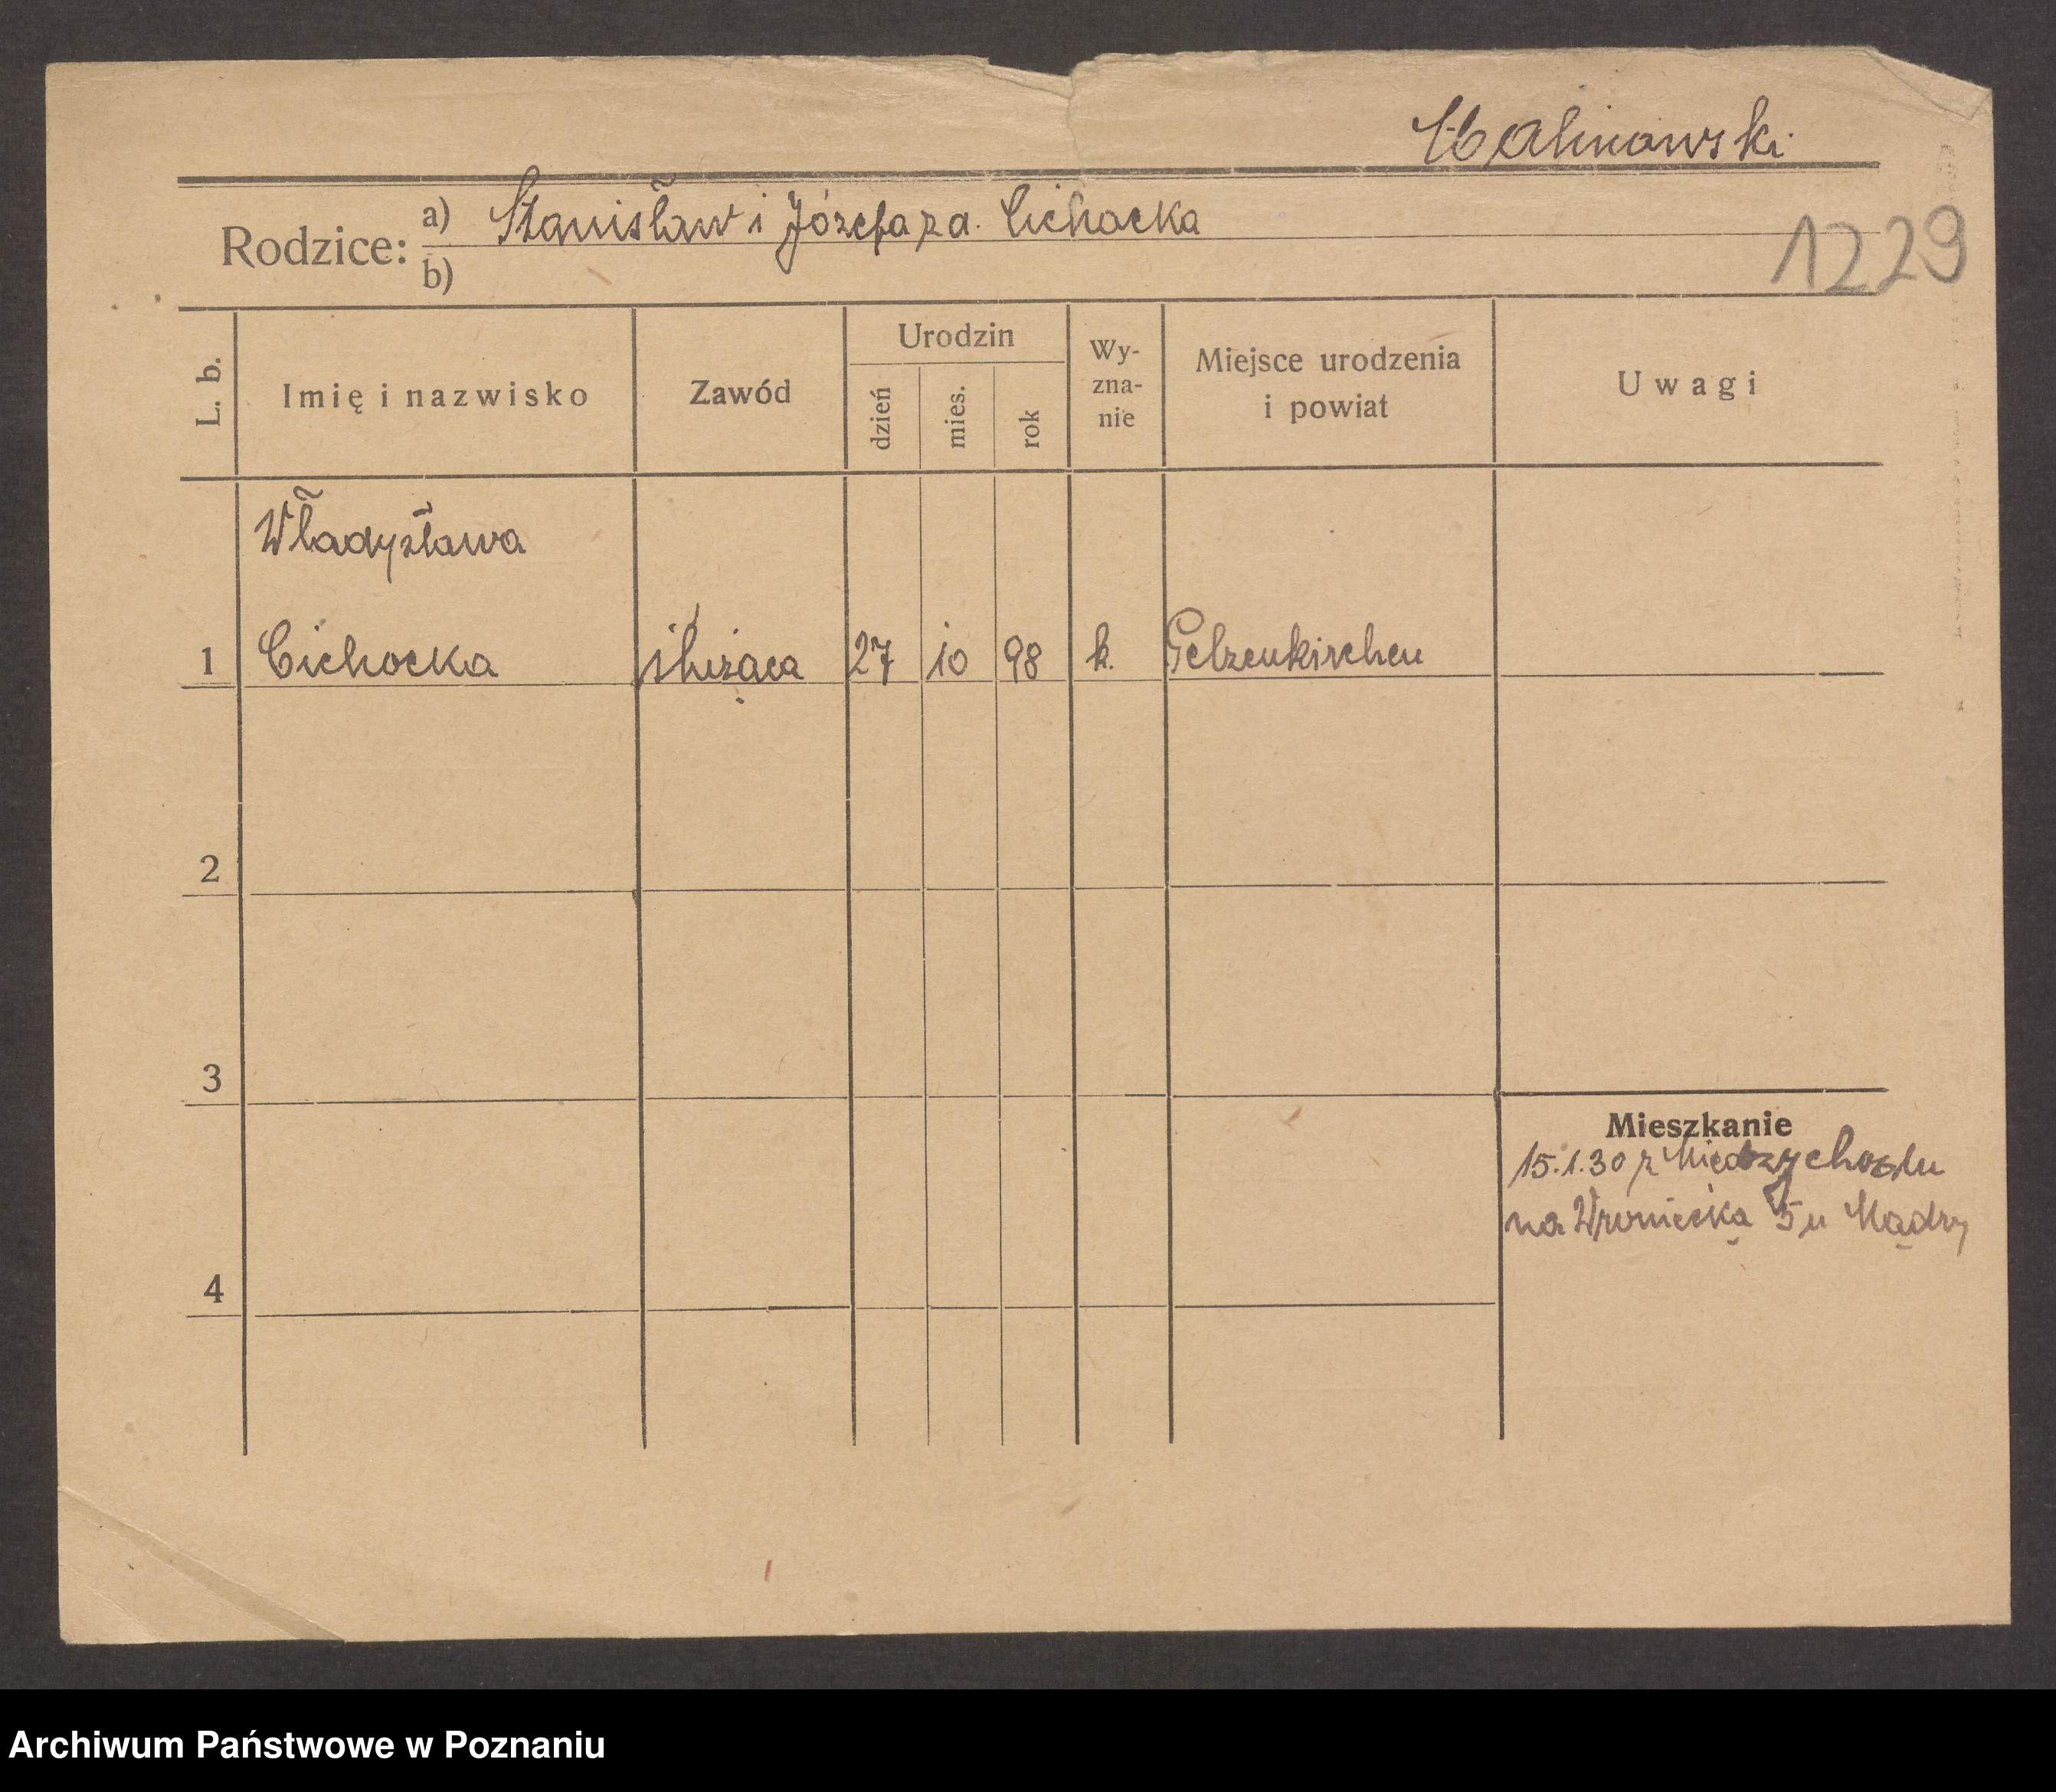 Malinowski
Rodzice: a) Stanisław i Józefa za. Cichocka
b)
1229
L. b.
Imię i nazwisko
Zawód
Urodzin
dzień
mies.
rok
Wy-
zna-
nie
Miejsce urodzenia
i powiat
Uwagi
Władysława
1 Cichocka służąca 27 10 98 k. Gelzenkirchen
2
3
Mieszkanie
15.1.30 z Międzychodu
na Wroniecką 5 u Mądry
4
Archiwum Państwowe w Poznaniu